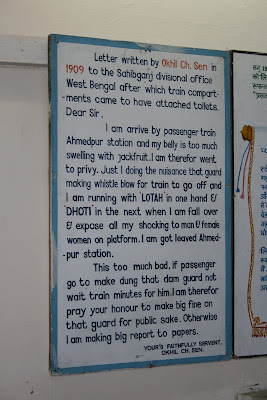 Letter written by Okhil Ch. Sen in
1909 to the Sahibganj divisional office
West Bengal after which train compart-
-ments came to have attached toilets.
Dear Sir,
I am arrive by passenger train
Ahmedpur station and my belly is too much
swelling with jackfruit. I am therefor went
to privy. Just I doing the nuisance that guard
making whistle blow for train to go off and
I am running with 'LOTAH' in one hand &
'DHOTI' in the next when I am fall over
& expose all my shocking to man & female
women on platform. I am got leaved Ahmed-
-pur station.
This too much bad, if passenger
go to make dung that dam guard not
wait train minutes for him. I am therefor
pray your honour to make big fine on
that guard for public sake. Otherwise
I am making big report to papers.
YOUR'S FAITHFULLY SERVENT,
OKHIL CH. SEN.